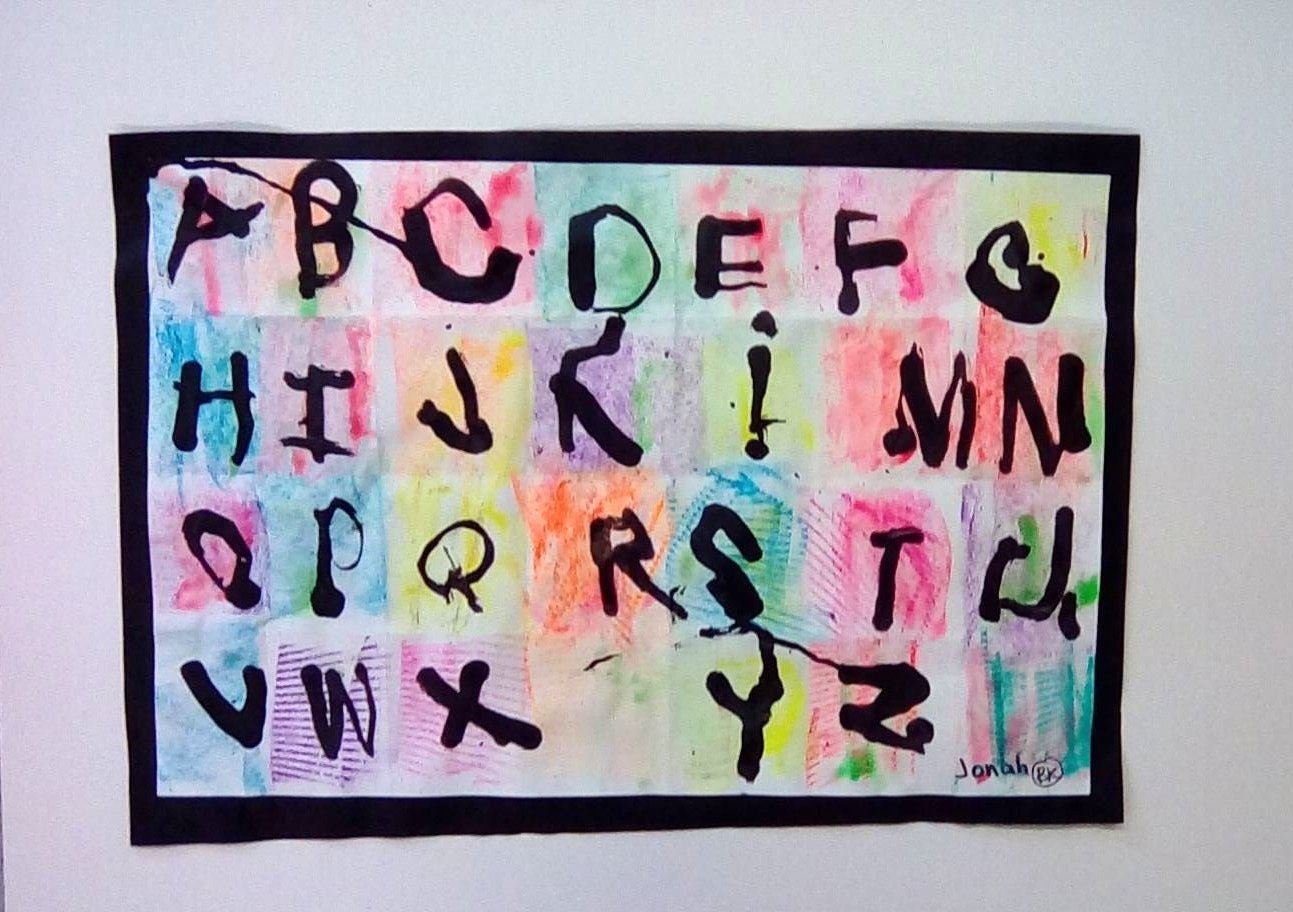 A B C D E F G
H I J K L M N
O P Q R S T U
V W X Y Z
Jonah RK